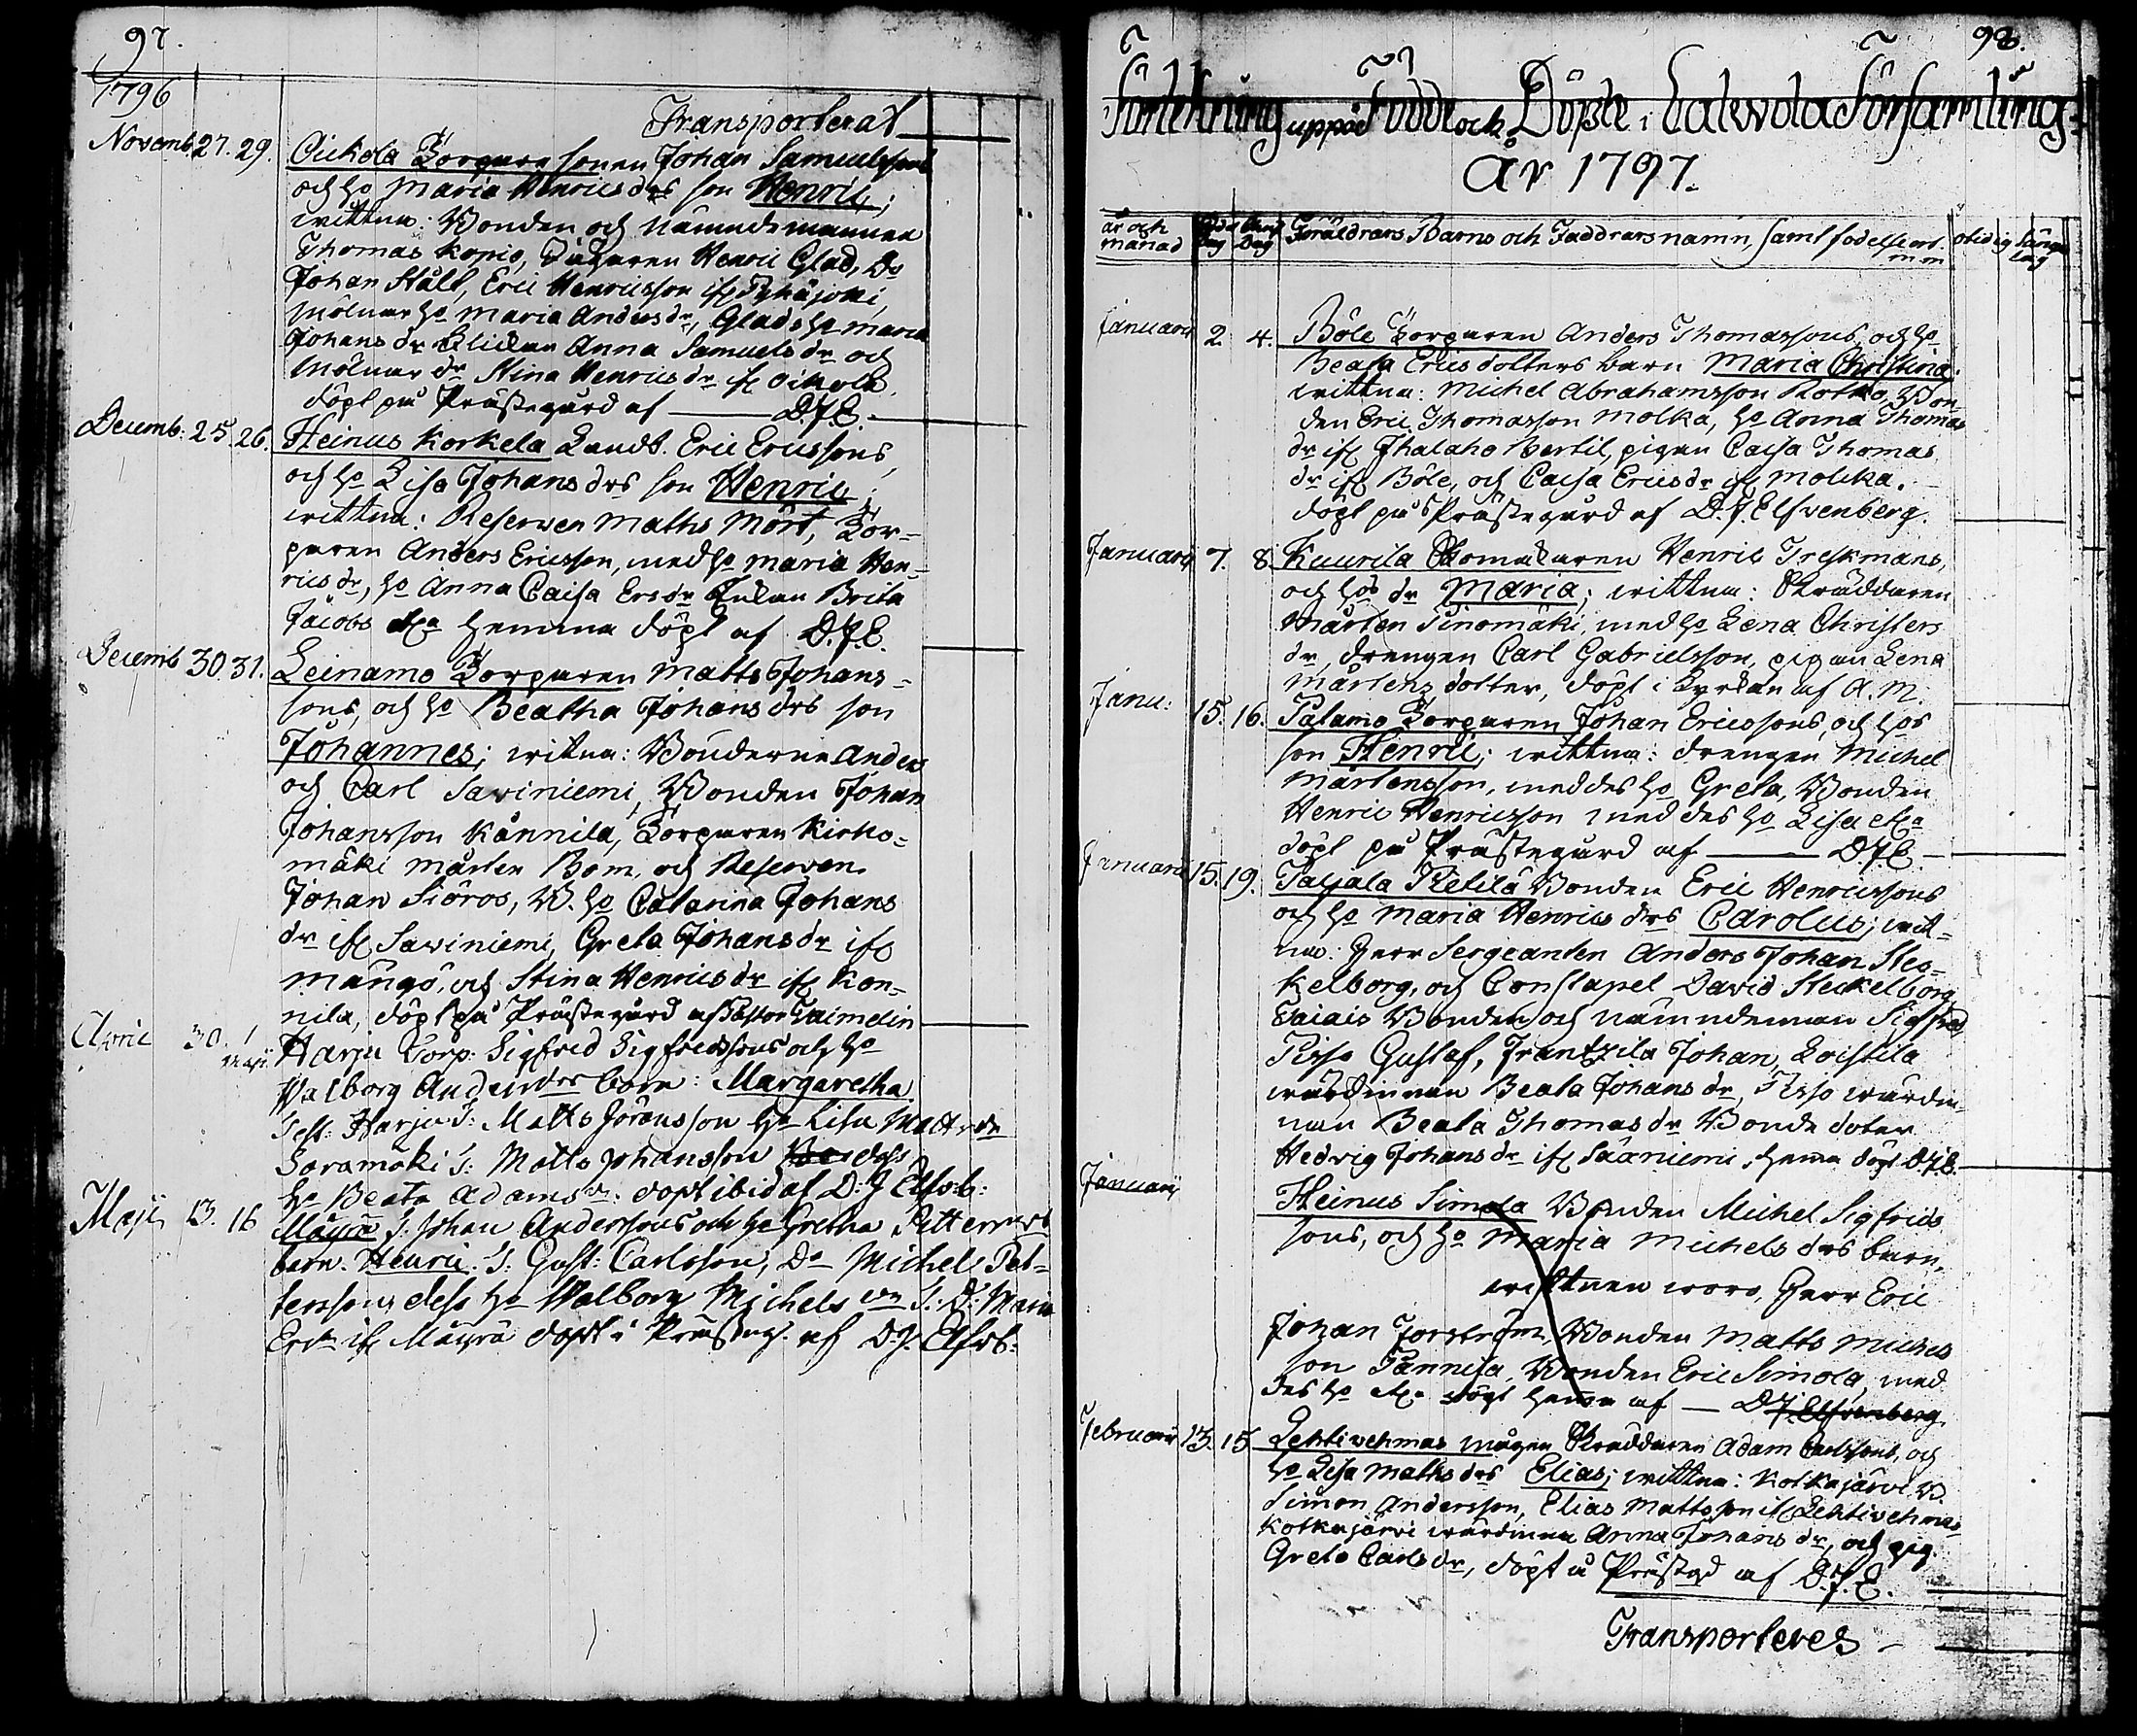 97.
1796
Transporterat
Novemb. 27. 29. Oickola Torpare sonen Johan Samuelssons
och ho Maria Henricsdrs son Henric;
wittna: Bonden och nämndemannen
Thomas Kopio, Henric Glad, Do
Johan Stålt, Eric Henricsson ifr
Mölnar ho Maria Andersdr, Glads ho Maria
Johansdr Anna Samuelsdr och
Mölnar dr Stina Henricsdr ifr Oikola
döpt på Prästegård af D.J.E.
Decemb: 25. 26. Heinus Korkela Landt. Eric Ericssons
och ho Lisa Johansdrs son Henric;
wittna: Reserven Matts Mört, Tor-
paren Anders Ericsson, med ho Maria Hen-
ricsdr, ho Anna Caisa Ersdr Enkan Brita
Jacobs hemma döpt af D.J.E.
Decemb 30. 31. Leinamo Torparen Matts Johans-
sons, och ho Beatha Johansdrs son
Johannes; witna: Bönderne Anders
och Carl Saviniemi, Bonden Johan
Johansson Kånnila, Torparen Kirko-
mäki Mårten Bom, och Reserven
Johan Siöros, B. ho Catarina Johans
dr ifr Saviniemi, Greta Johansdr ifr
Mangö, och Stina Henricsdr ifr Kon-
nila, döpt på Prästegård af Pastor Taimelin
Aprie 30. 1 Maji. Harju Torp: Sigfred Sigfredssons och ho
Walborg Andersdrs barn: Margaretha
Test: Harju T: Matts Göransson ho Lisa Mattsdr
Saramäki T: Matts Johansson dess
ho Beata Adamsdr. döpt ibid af D: J Elfvb:
Maji 13. 16 Mäyrä T: Johan Anderssons och ho Gretha Pettersdrs
barn. Henric. T: Gust: Carlsson, Do Michell Pet-
tersson dess ho Walborg Michelsdr T: D: Maria
Ersdr ifr Mäyrä döpt i Prästeg. af D.J. Elfvb:
98.
Förtekning uppå Födde och Döpte i Calvola Församling
År 1797.
år och månad
Födde Dag
Christ Dag
Föräldrars Barns och Faddrars namn, samt födelseort m m
otidig
Sänge lag
Januarii 2. 4. Böle Torparen Anders Thomassons, och ho
Beata Ericsdotters barn Maria Christina.
wittna: Michel Abrahamsson Rotko, Bon-
den Eric Thomasson Molka, ho Anna Thomas
dr ifr Ihalaho Bertil, pigan Caisa Thomas
dr ifr Böle, och Caisa Ericsdr ifr Molika.
döpt på Prästegård af D.J. Elfvenberg.
Januarii 7. 8. Kuurila Skomakaren Henric Treskmans,
och hos dr Maria; wittna: Skräddaren
Mårten Sinomäki, med ho Lena Christers
dr, drengen Carl Gabrielsson, pigan Lena
Mårtens dotter, döpt i Kyrkan af A.M.
Janu: 15. 16. Palamo Torparen Johan Ericssons, och hos
son Henric; wittna: drengen Michel
Mårtensson, med des ho Greta, Bonden
Henric Henricsson med des ho Lisa
döpt på Prästegård af D.J.E.
Januarii 15. 19. Taljala Retilä Bonden Eric Henricssons
och ho Maria Henricsdrs Carolus; wit-
na: Herr Sergeanten Anders Johan Stec-
kelborg, och Constapel David Steckelborg
Bonden och nämndeman Sigfred
Gustaf, Frantzila Johan, Loistila
wärdinnan Beata Johansdr, wärdin-
nan Beata Thomasdr Bonde doter
Hedvig Johansdr ifr Sääniemi, hema döpt D.J.E.
Januarii Heinus Simola Bonden Michel Sigfrids
sons, och ho Maria Michelsdrs barn,
wittnen woro, Herr Eric
Johan Forström, Bonden Matts Michels
son Tannila, Bonden Eric Simola med
des ho döpt hema af D.J. Elfvenberg.
Februarii 13. 15. Lehtivehmas mågen Skräddaren Adam Carlssons, och
ho Lisa Mattsdrs Elias; wittna: Kotkajärvi B.
Simon Andersson, Elias Mattsson ifr Lehtivehmas
Kotkajärvi wärdinna Anna Johansdr, och pig.
Greta Carlsdr, döpt å Prästgd af D.J.E.
Transporteres